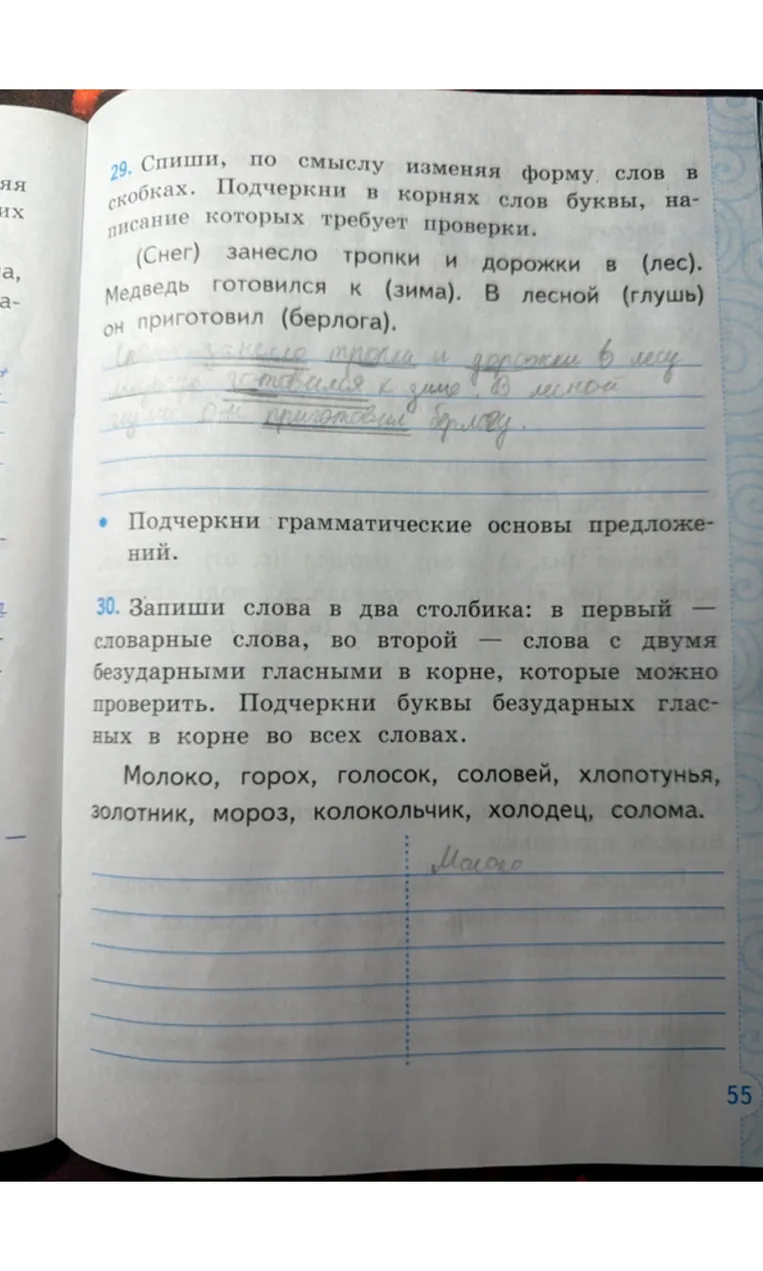 яя
их
а,
а-
29. Спиши, по смыслу изменяя форму слов в
скобках. Подчеркни в корнях слов буквы, на-
писание которых требует проверки.
(Снег) занесло тропки и дорожки в (лес).
Медведь готовился к (зима). В лесной (глушь)
он приготовил (берлога).
занесло тропки и дорожки в лесу
готовился к зиме. В лесной
он приготовил берлогу.
• Подчеркни грамматические основы предложе-
ний.
30. Запиши слова в два столбика: в первый —
словарные слова, во второй — слова с двумя
безударными гласными в корне, которые можно
проверить. Подчеркни буквы безударных глас-
ных в корне во всех словах.
Молоко, горох, голосок, соловей, хлопотунья,
золотник, мороз, колокольчик, холодец, солома.
Молоко
55